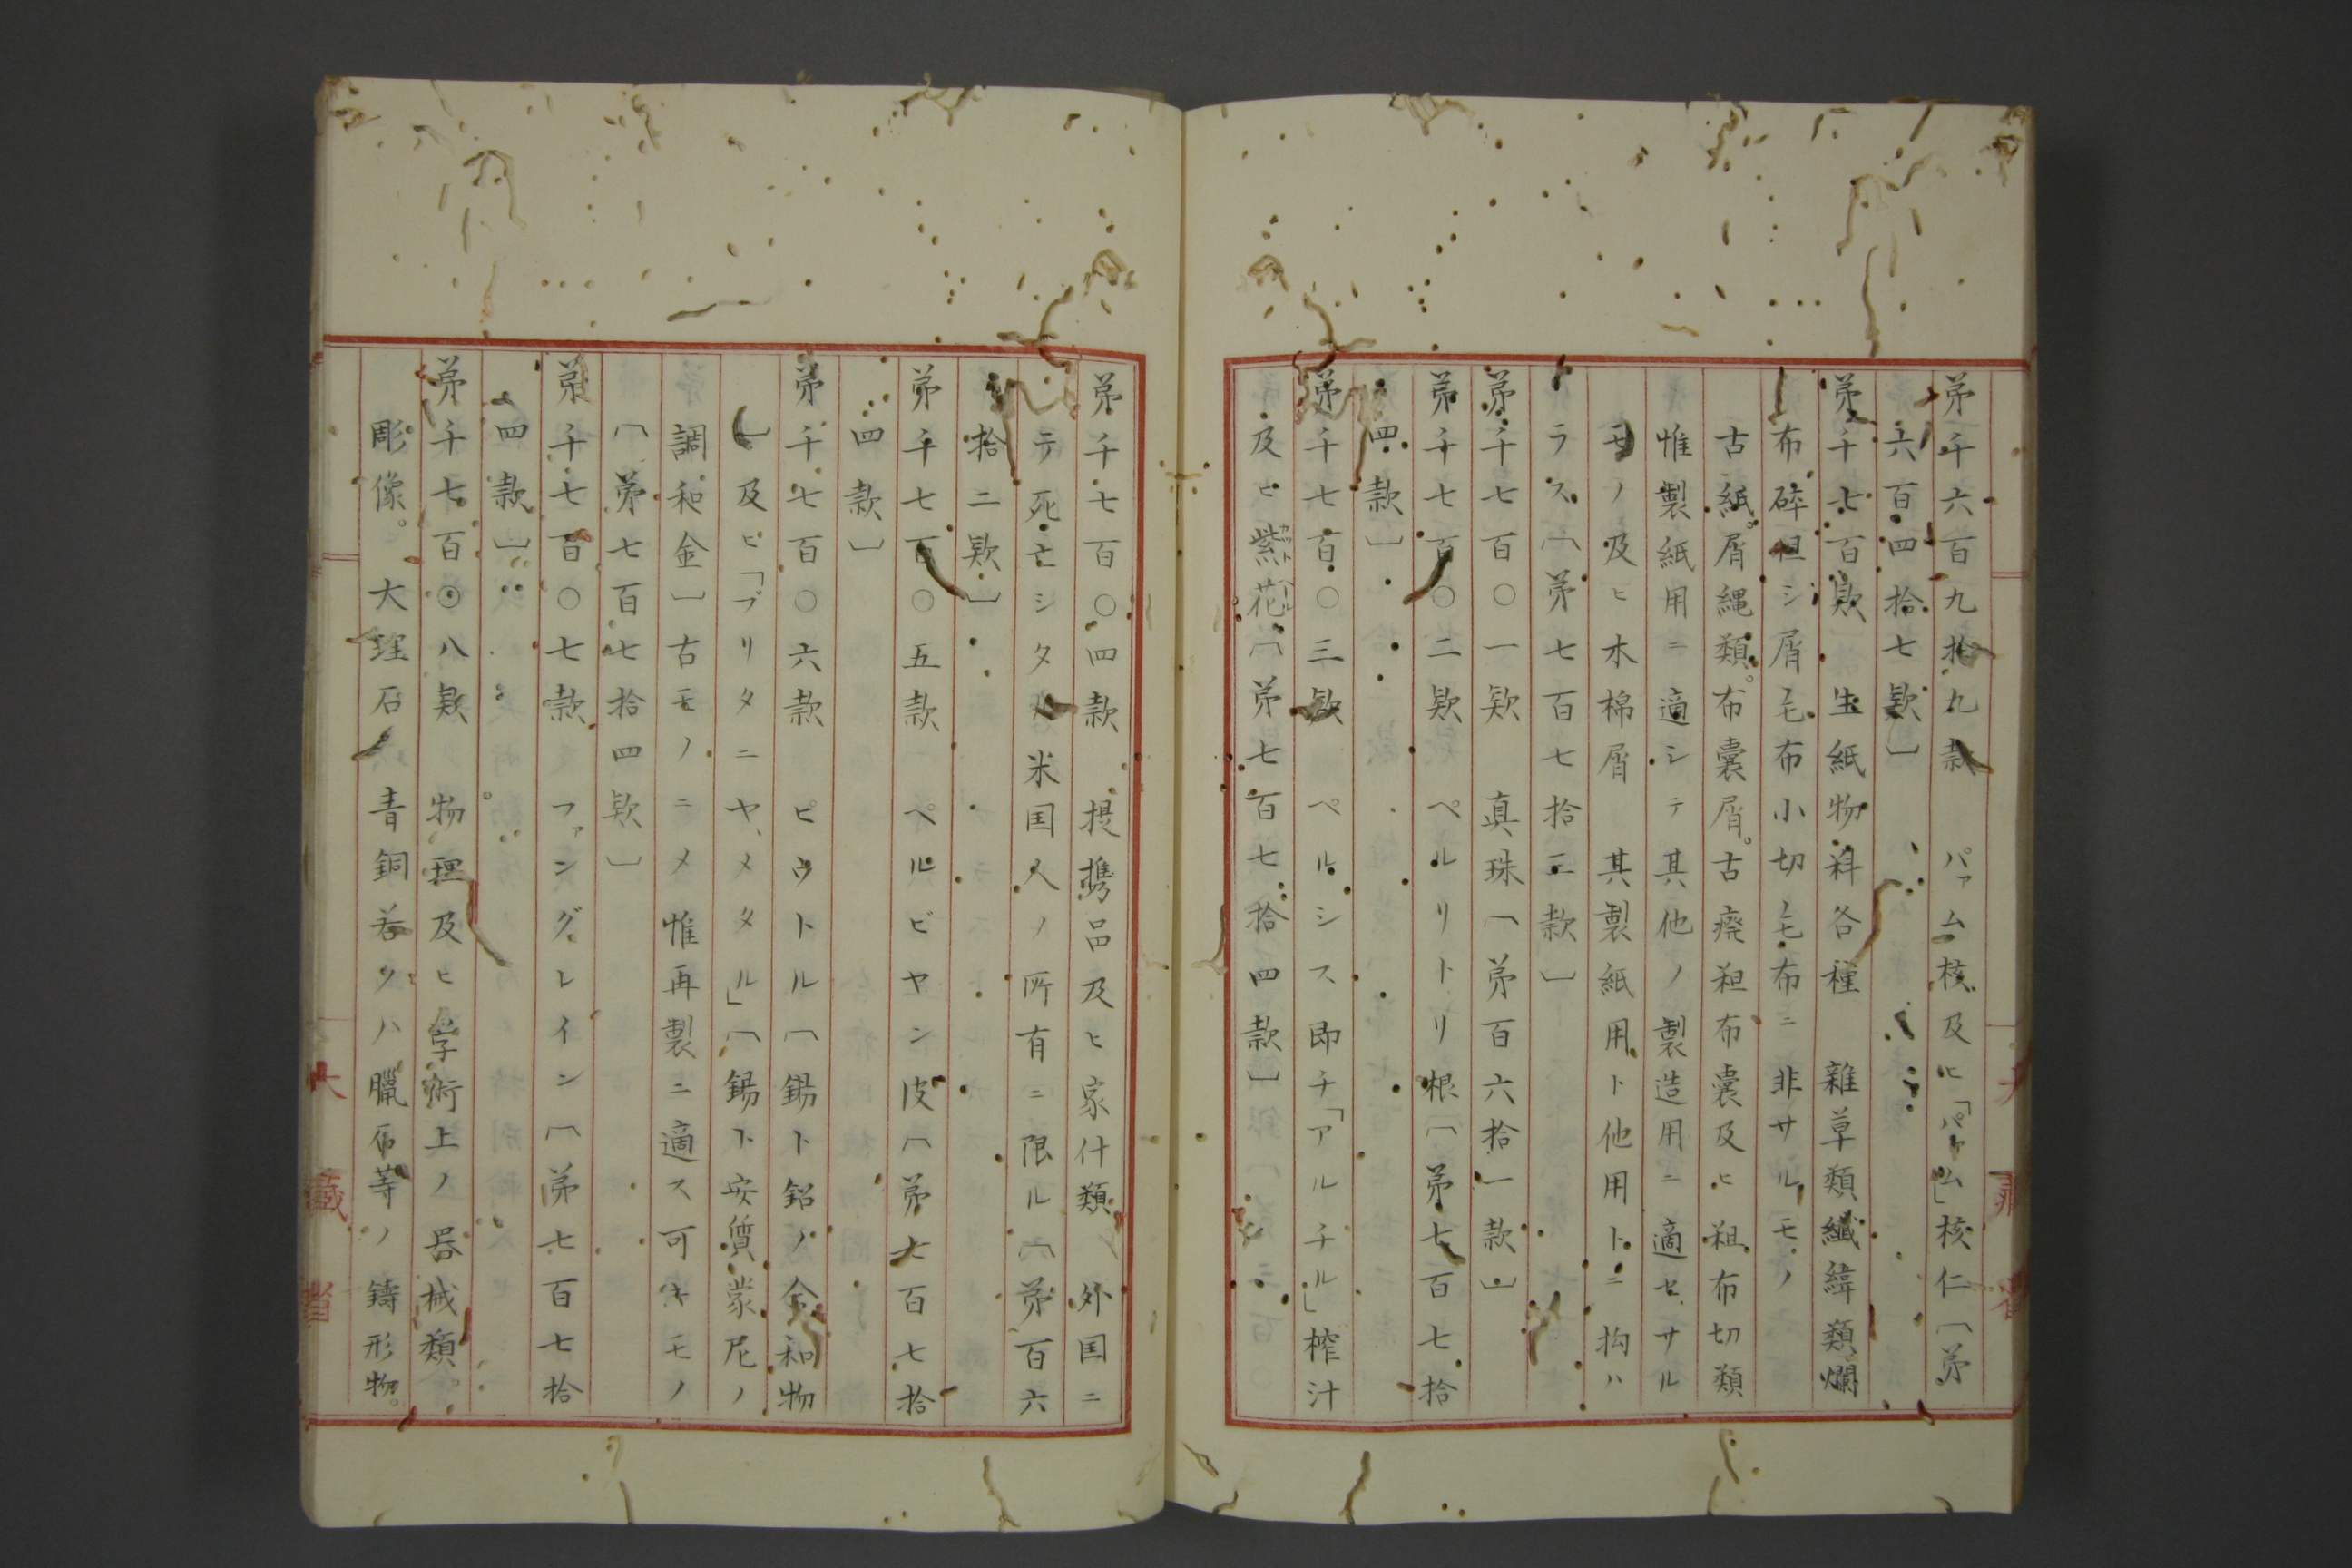 第千六百九拾九款　パァム核及ヒ「パァム」核仁〔第
六百四拾七款〕
第千七百款　生紙物料各種　雑草類纎緯類爛
布碎粗シ屑毛布小切毛布ニ非サルモノ
古紙。屑縄類。布嚢屑。古廃粗布嚢及ヒ粗布切類
惟製紙用ニ適シテ其他ノ製造用ニ適セサル
モノ及ヒ木棉屑　其製紙用ト他用トニ拘ハ
ラス〔第七百七拾三款〕
第千七百〇一款　真珠〔第百六拾一款〕
第千七百〇二款　ペルリトリ根〔第七百七拾
四款〕
第千七百〇三款　ペルシス即チ「アルチル」榨汁
及ヒ紫花〔第七百七拾四款〕
第千七百〇四款　提携品及ヒ家什類　外国ニ
テ死亡シタル米国人ノ所有ニ限ル〔第百六
拾二款〕
第千七百〇五款　ペルビヤン皮〔第七百七拾
四款〕
第千七百〇六款　ピウトル〔錫ト鉛ノ合和物
〕及ヒ「ブリタニヤ、メタル」〔錫ト安質蒙尼ノ
調和金〕古モノニメ惟再製ニ適ス可キモノ
〔第七百七拾四款〕
第千七百〇七款　ファングレイン〔第七百七拾
四款〕
第千七百〇八款　物理及ヒ学術上ノ器械類
彫像。　大理石　青銅若クハ臘石等ノ鋳形物。
大藏省